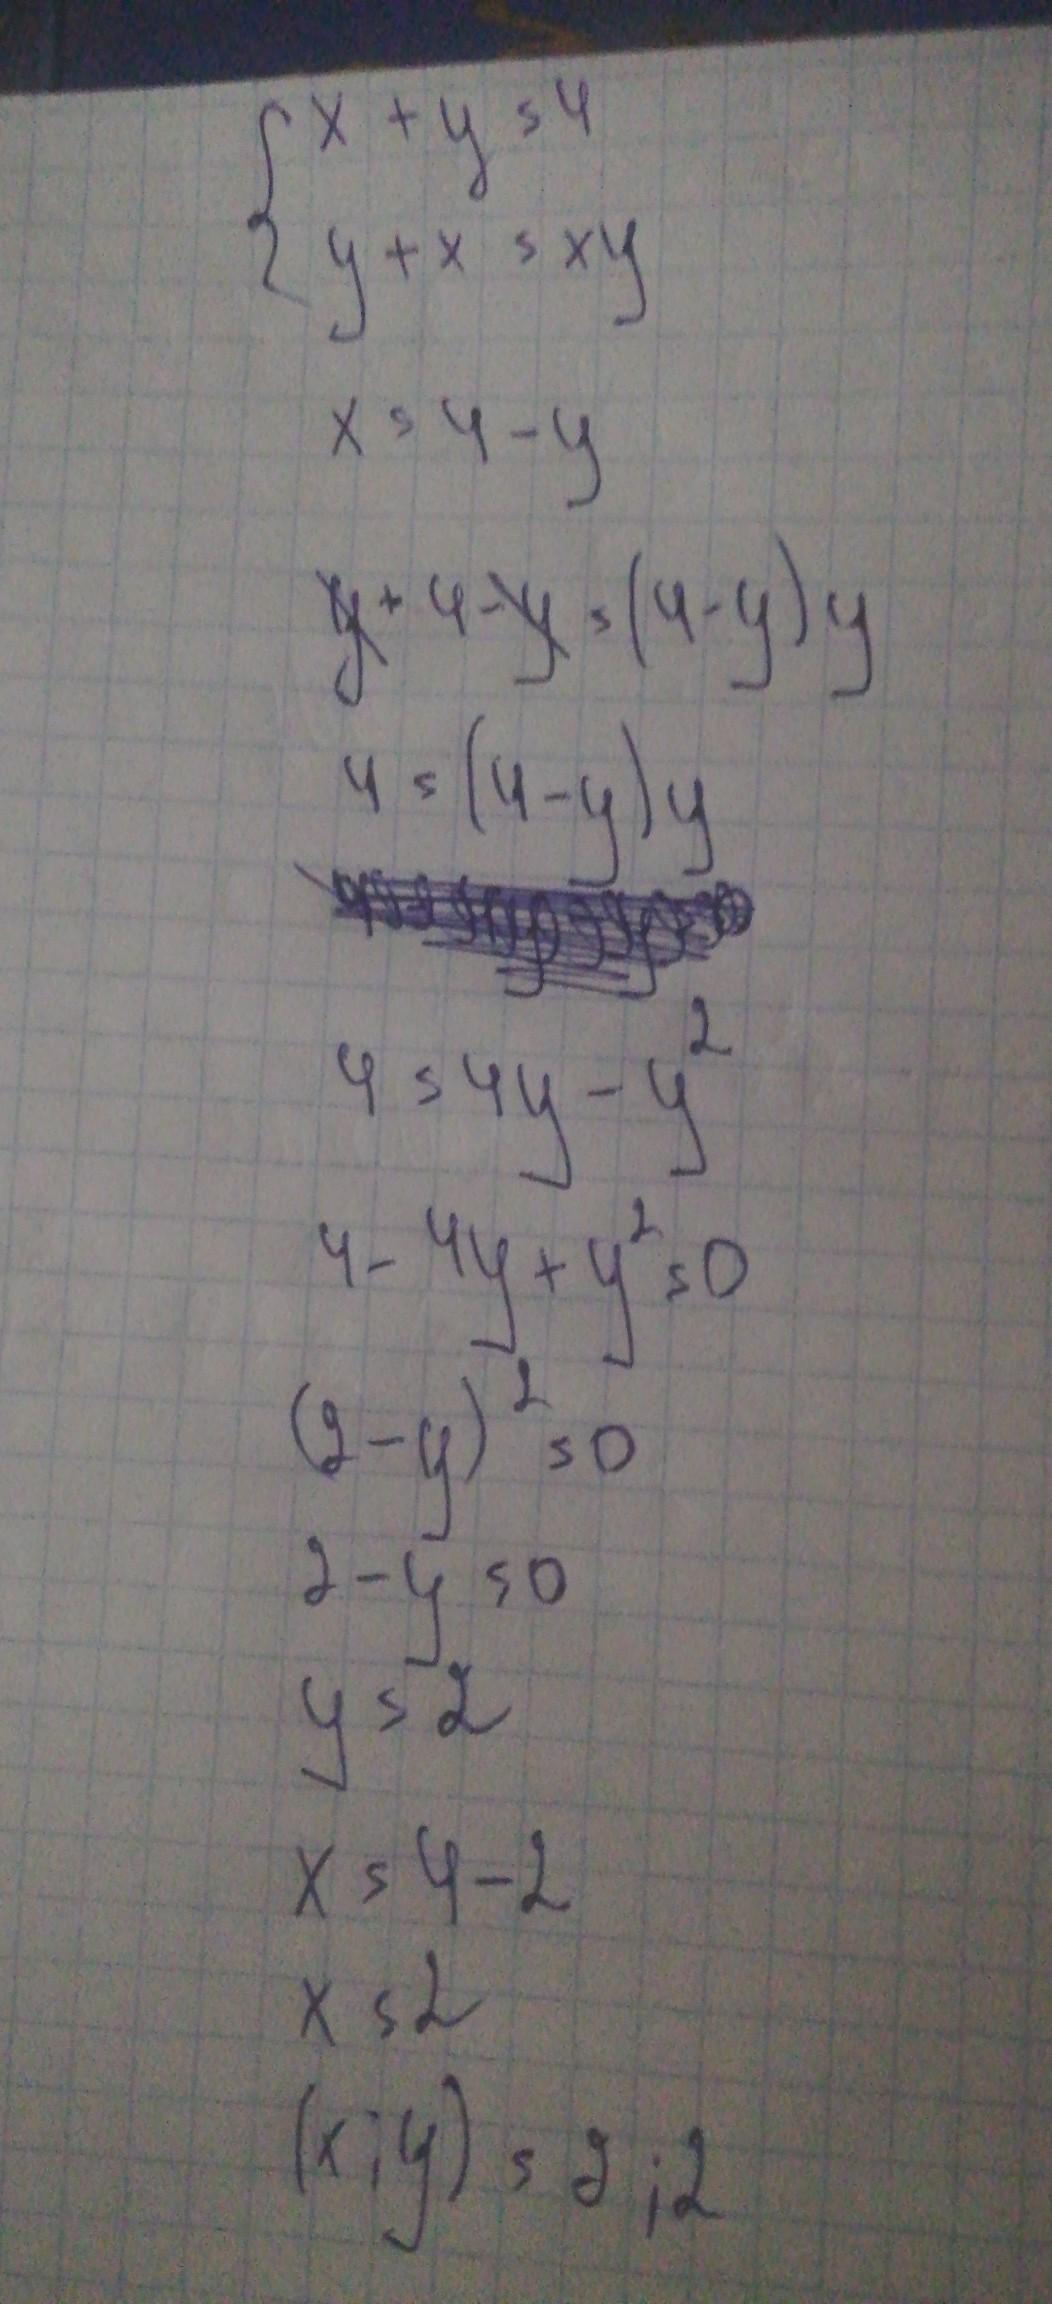 { x + y = 4
y + x = xy
x = 4 - y
y + 4 - y = (4 - y) y
4 = (4 - y) y
4 = 4y - y²
4 - 4y + y² = 0
(2 - y)² = 0
2 - y = 0
y = 2
x = 4 - 2
x = 2
(x ; y) = 2 ; 2